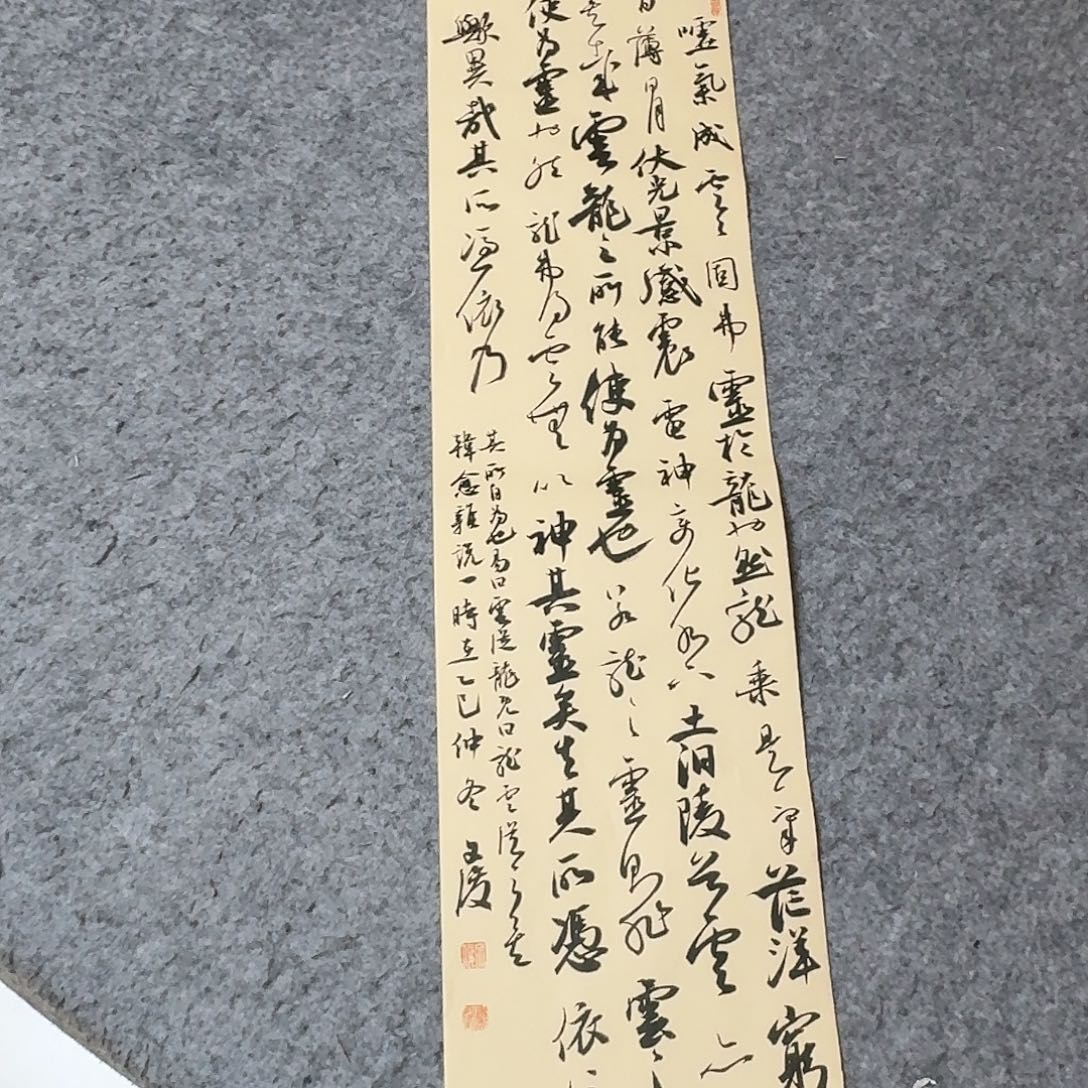 噓氣成雲〻固弗靈於龍也然龍乘是氣茫洋窮
薄日月伏光景感震電神變化水下土汩陵谷雲亦
矣哉雲龍之所能使為靈也若龍之靈則非雲之
使為靈也然龍弗得雲無以神其靈矣失其所憑依
歟異哉其所憑依乃
其所自為也易曰雲從龍既曰龍雲從之矣
韓愈雜說一時在乙巳仲冬